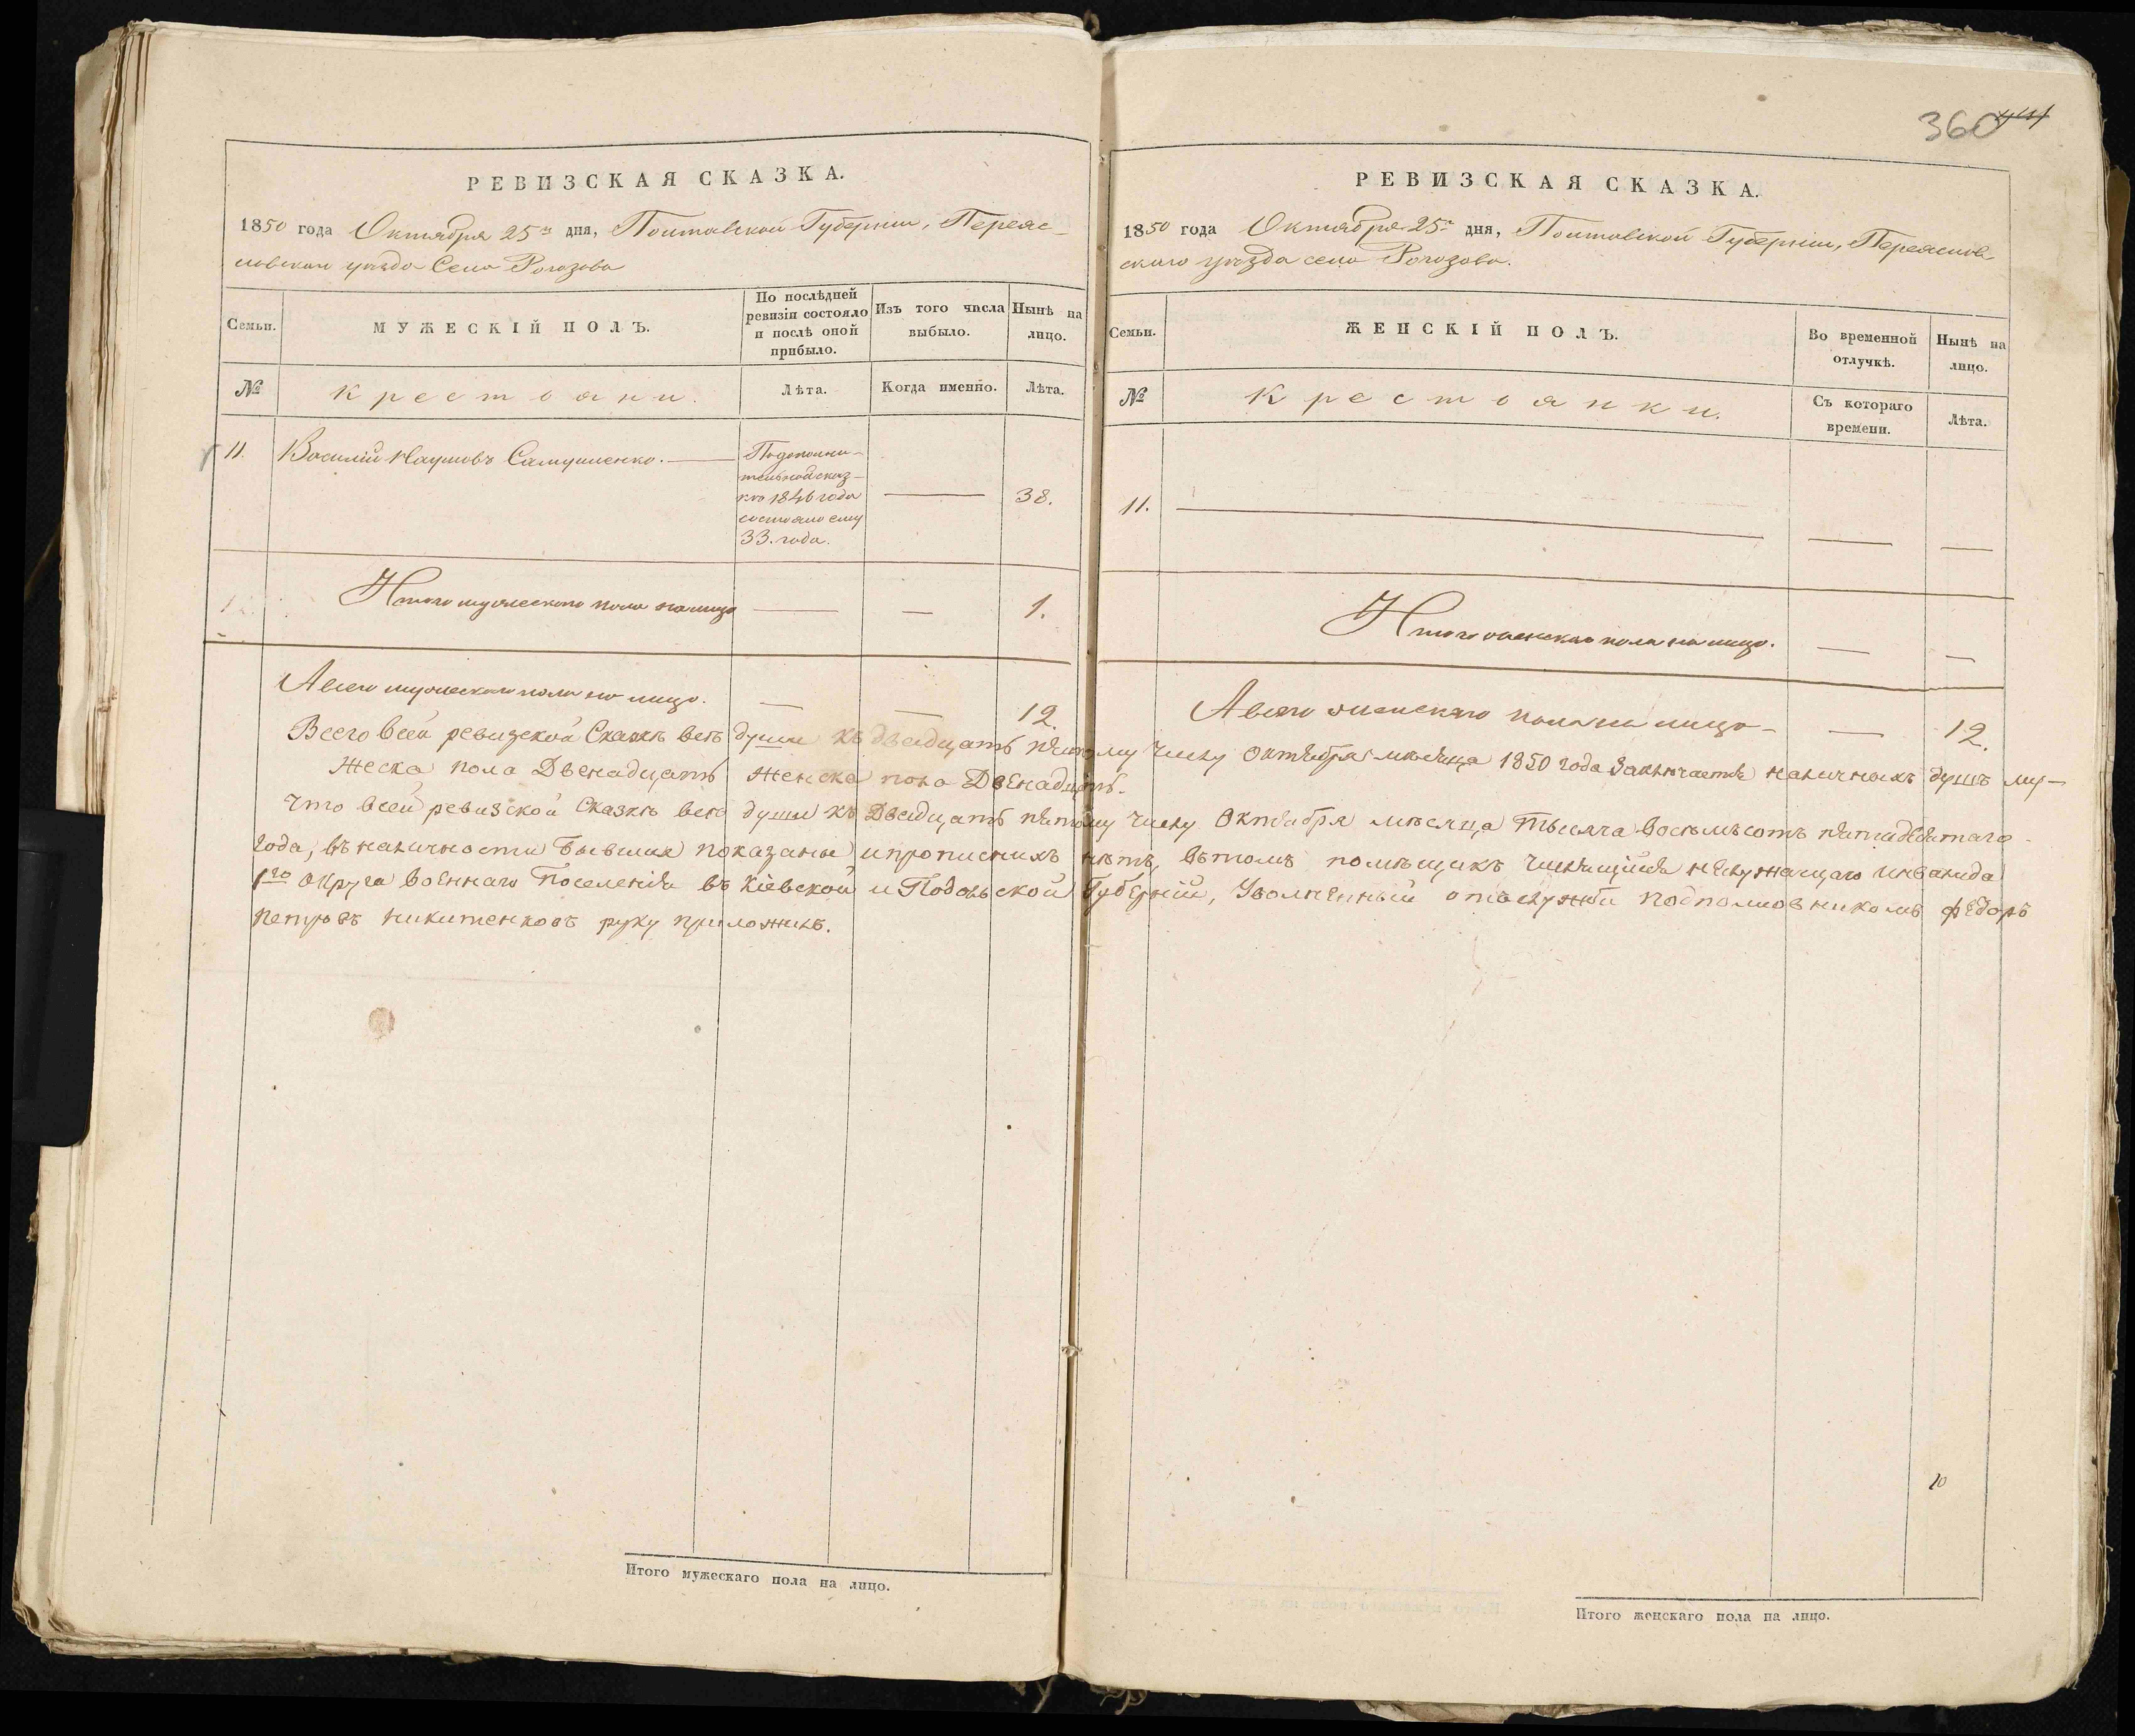 360
РЕВИЗСКАЯ СКАЗКА.
1850 года Октября 25го дня, Полтавской Губерніи, Переяс-
лавскаго уѣзда Села Рогозова
Семьи.
МУЖЕСКІЙ ПОЛЪ.
По послѣдней ревизіи состояло и послѣ оной прибыло.
Изъ того числа выбыло.
Нынѣ на лицо.
№
Крестьяни.
Лѣта.
Когда именно.
Лѣта.
11.
Василій Наумовъ Самушенко.
Подополни-
тельной сказ-
кѣ 1846 года
состояло ему
33. года.
38.
12.
Итого мужескаго пола налицо
1.
А всего мужескаго пола на лицо.
12.
РЕВИЗСКАЯ СКАЗКА.
1850 года Октября 25го дня, Полтавской Губерніи, Переяслав-
скаго уѣзда села Рогозова.
Семьи.
ЖЕНСКІЙ ПОЛЪ.
Во временной отлучкѣ.
Нынѣ на лицо.
№
Крестьянки.
Съ котораго времени.
Лѣта.
11.
Итого женскаго пола на лицо.
А всего женскаго пола на лицо
12.
Всего всей ревизской Сказкѣ всѣ души къ двадцать пятому числу Октября мѣсяца 1850 года Заключается наличныхъ душъ му-
жеска пола Двенадцать женска пола Двенадцать.
Что всей ревизской Сказкѣ все души къ Двадцать пятому числу Октября мѣсяца Тысяча восемьсотъ пятидесятаго
года, въ наличности бывшия показаны и прописнихъ нѣтъ, вътомъ помѣщикъ числящійся неслужащаго инвалида
1го Округа военнаго Поселенія въ Кіевской и Подольской Губерній, Уволненный отъ службы подполковникомъ Федоръ
Петровъ Никитенковъ руку приложилъ.
10
Итого мужескаго пола на лицо.
Итого женскаго пола на лицо.